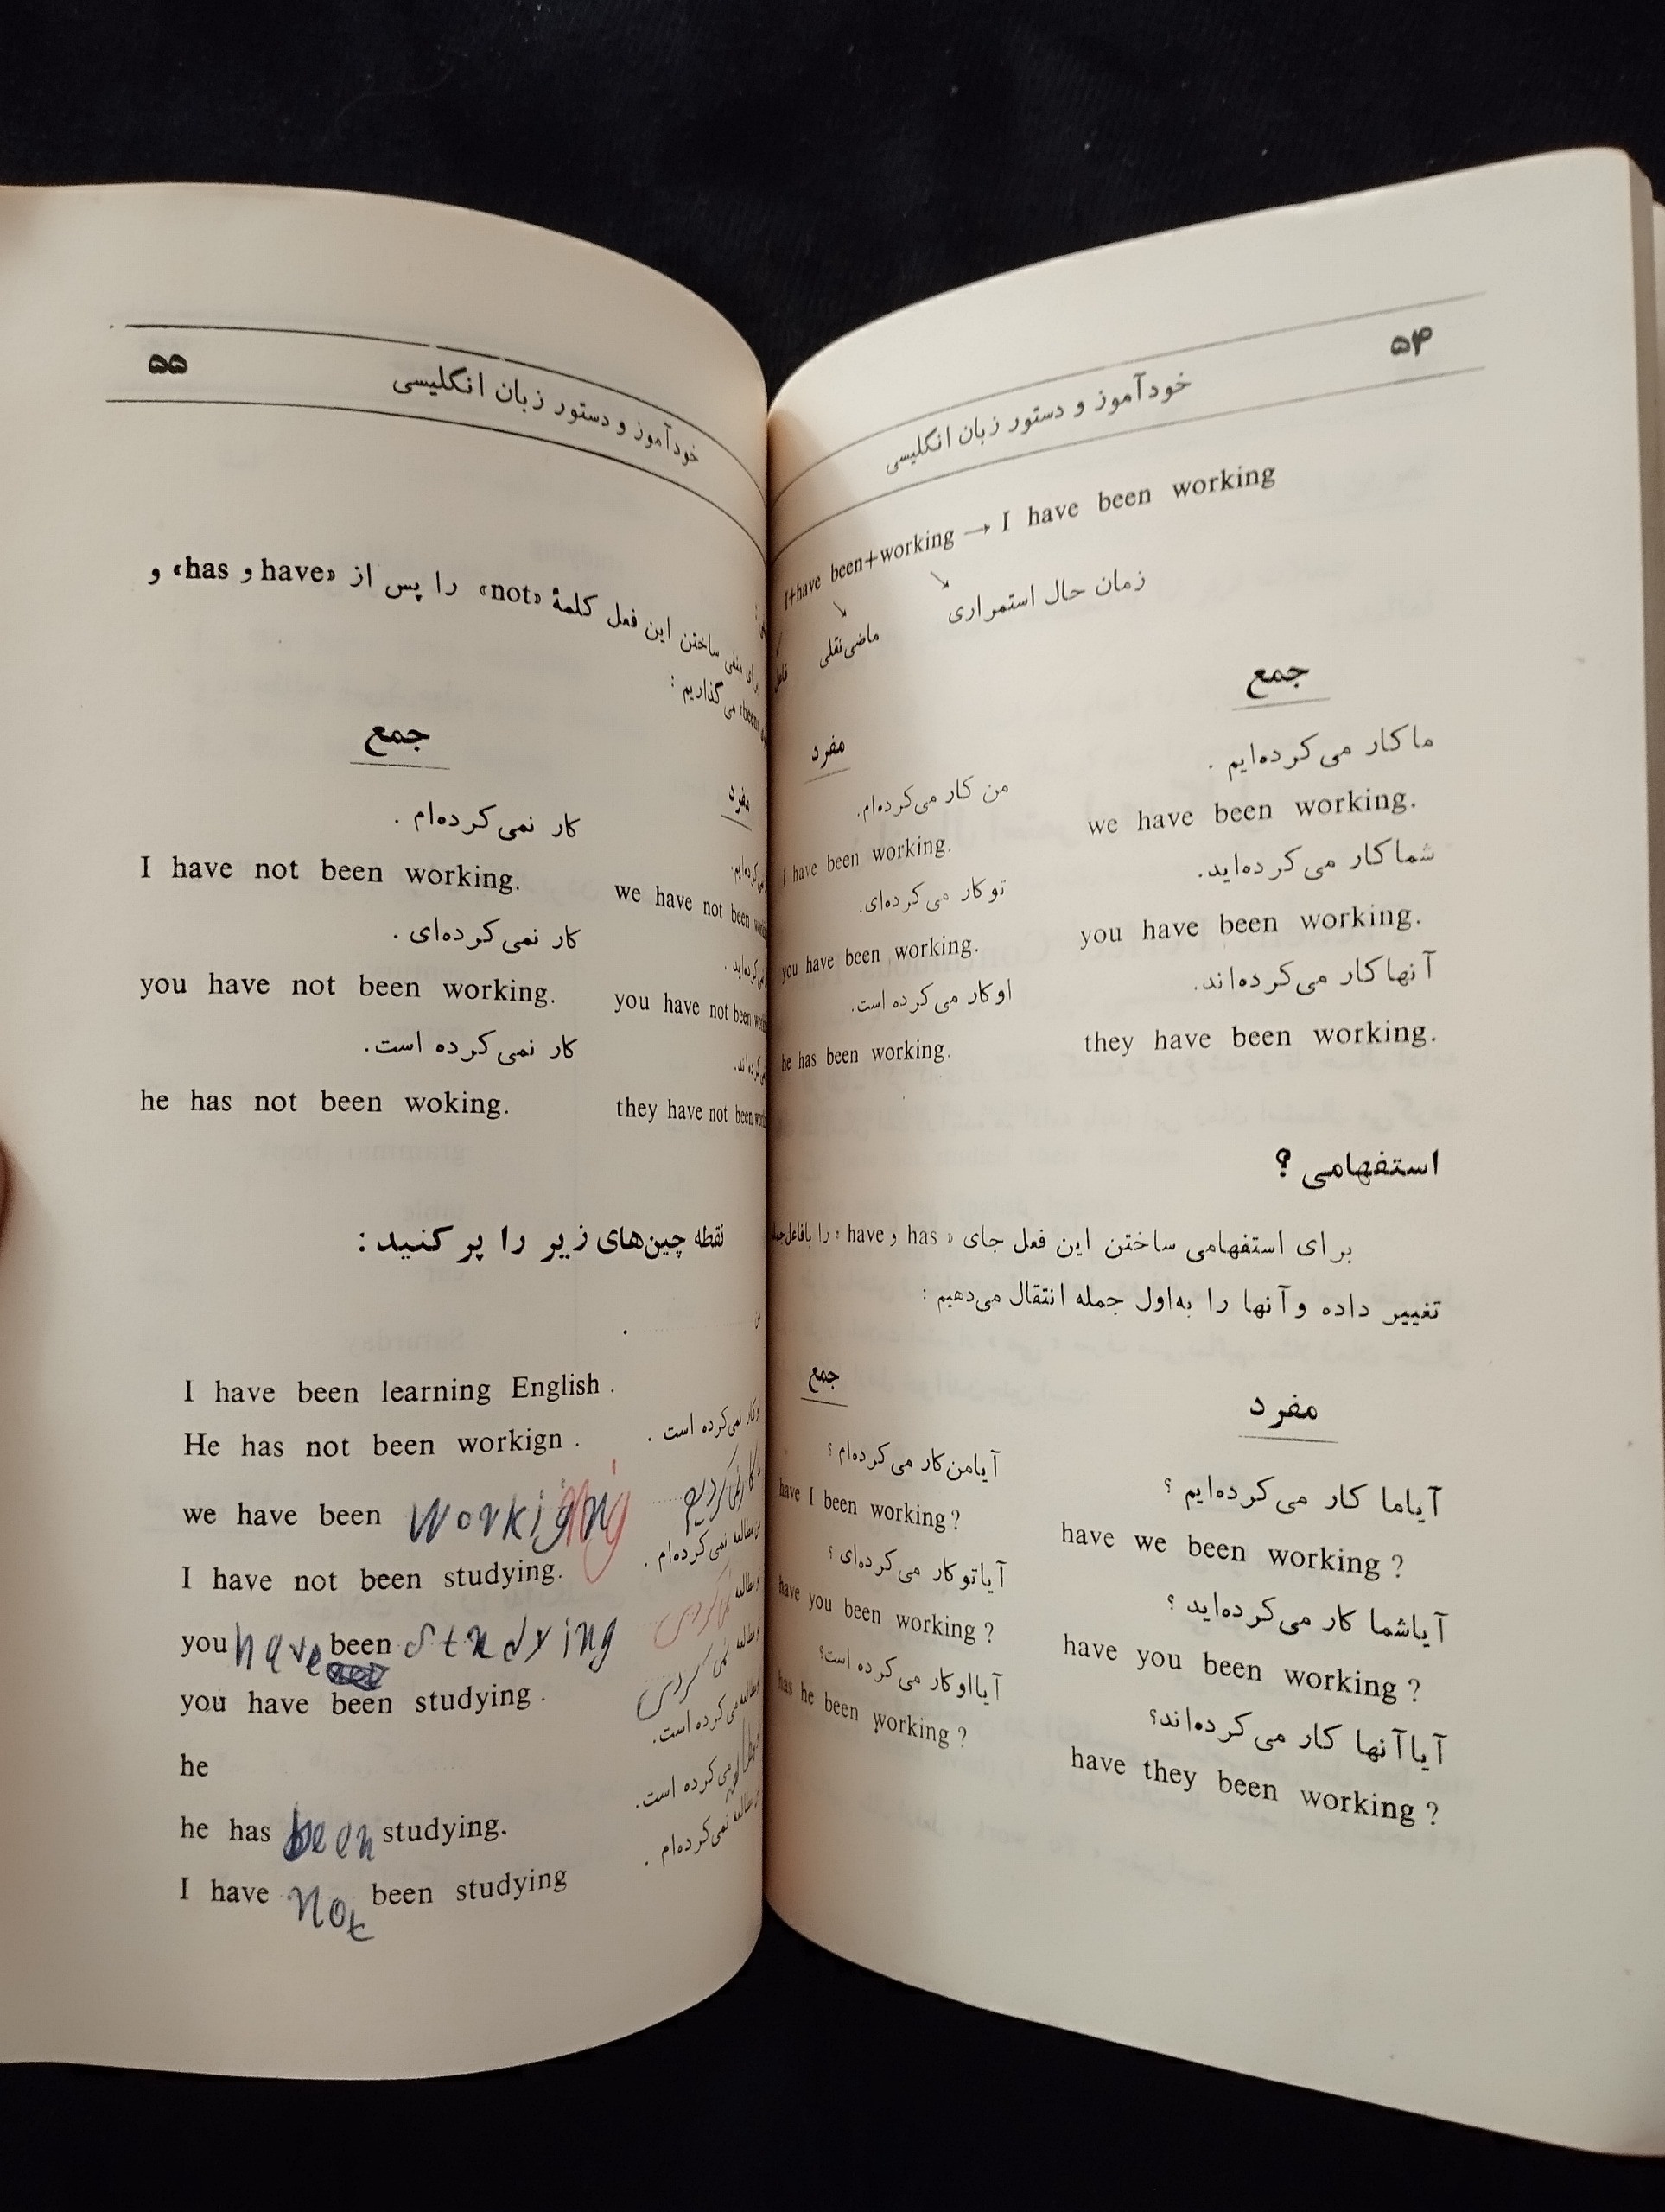 ۵۴
خودآموز و دستور زبان انگلیسی
I+have been+working → I have been working
فاعل ماضی‌نقلی زمان حال استمراری
مفرد جمع
من کار می‌کرده‌ام. ما کار می‌کرده‌ایم .
I have been working. we have been working.
تو کار می‌کرده‌ای. شما کار می‌کرده‌اید.
you have been working. you have been working.
او کار می‌کرده است. آنها کار می‌کرده‌اند.
he has been working. they have been working.
استفهامی ؟
برای استفهامی ساختن این فعل جای « has و have » را بافاعل جمله
تغییر داده و آنها را به‌اول جمله انتقال می‌دهیم :
جمع مفرد
آیامن کار می‌کرده‌ام ؟ آیاما کار می‌کرده‌ایم ؟
have I been working ? have we been working ?
آیاتو کار می‌کرده‌ای ؟ آیاشما کار می‌کرده‌اید ؟
have you been working ? have you been working ?
آیااو کار می‌کرده است؟ آیاآنها کار می‌کرده‌اند؟
has he been working ? have they been working ?
۵۵
خودآموز و دستور زبان انگلیسی
برای منفی ساختن این فعل کلمهٔ «not» را پس از «have و has» و
«been» می‌گذاریم :
جمع مفرد
کار نمی‌کرده‌ام .
I have not been working. we have not been
کار نمی‌کرده‌ای .
you have not been working. you have not been
کار نمی‌کرده است.
he has not been woking. they have not been
نقطه چین‌های زیر را پر کنید :
I have been learning English .
He has not been workign . او کار نمی‌کرده است .
we have been working
I have not been studying. من مطالعه نمی‌کرده‌ام .
you have been studying
you have been studying .
he می‌کرده است.
he has been studying. می‌کرده است.
I have not been studying من مطالعه نمی‌کرده‌ام .